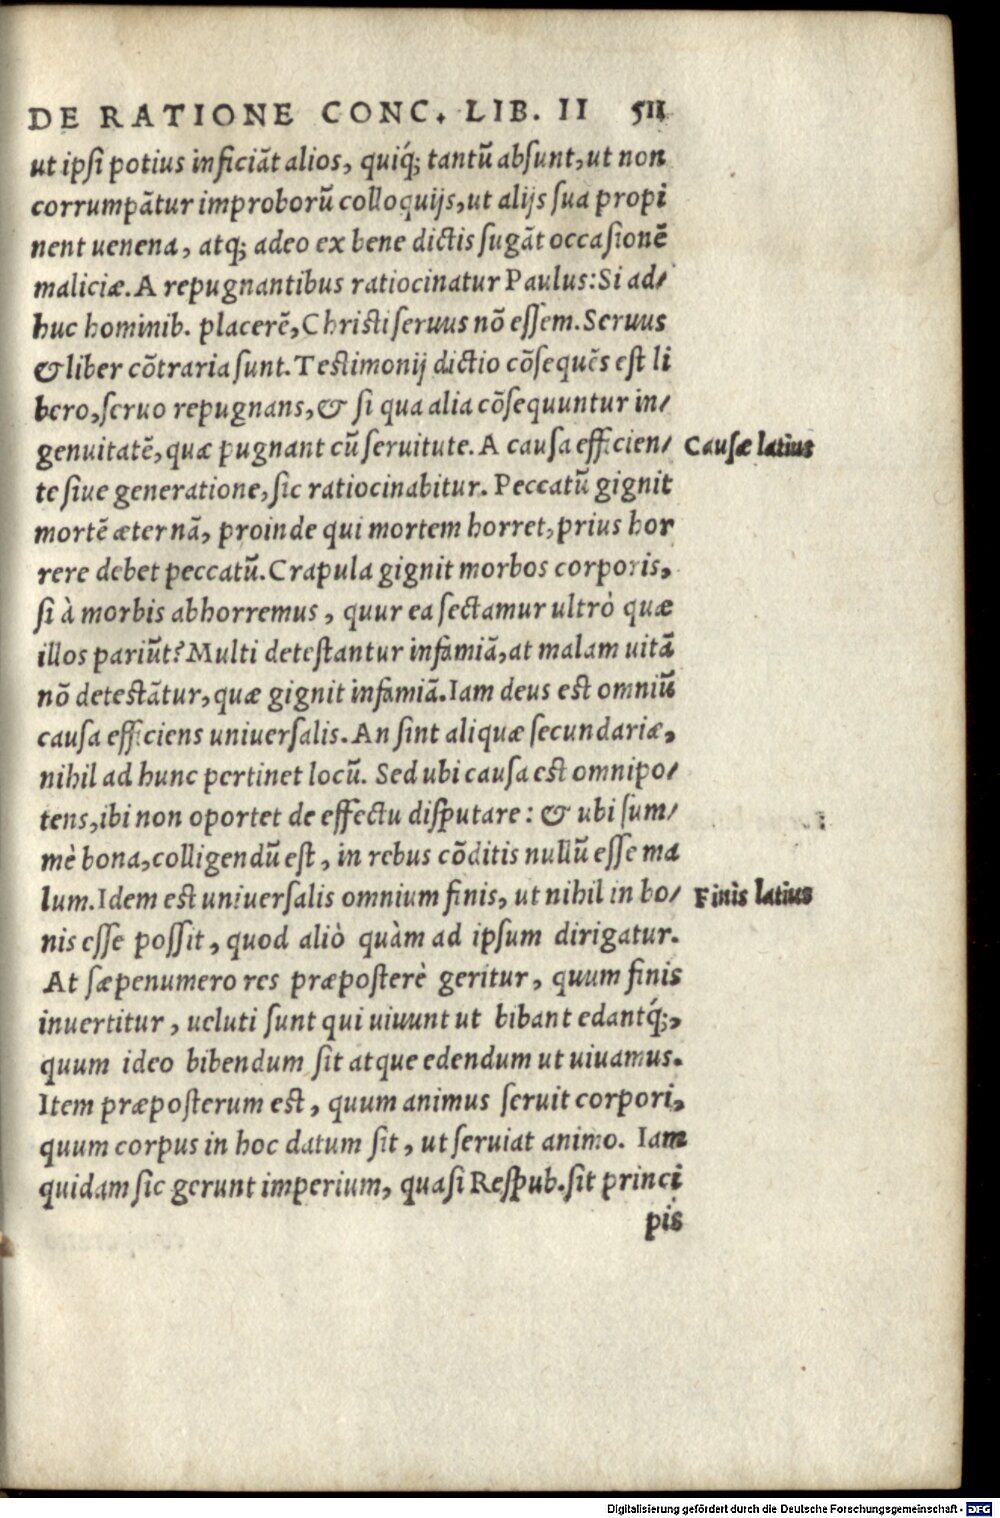 DE RATIONE CONC. LIB. II 511
ut ipsi potius inficiãt alios, quiq́; tantũ absunt, ut non
corrumpãtur improborũ colloquijs, ut alijs sua propi
nent uenena, atq; adeo ex bene dictis sugãt occasionẽ
maliciæ. A repugnantibus ratiocinatur Paulus: Si ad/
huc hominib. placerẽ, Christi seruus nõ essem. Seruus
& liber cõtraria sunt. Testimonij dictio cõsequẽs est li
bero, seruo repugnans, & si qua alia cõsequuntur in/
genuitatẽ, quæ pugnant cũ seruitute. A causa efficien/
Causæ latius
te siue generatione, sic ratiocinabitur. Peccatũ gignit
mortẽ æternã, proinde qui mortem horret, prius hor
rere debet peccatũ. Crapula gignit morbos corporis,
si à morbis abhorremus, quur ea sectamur ultrò quæ
illos pariũt? Multi detestantur infamiã, at malam uitã
nõ detestãtur, quæ gignit infamiã. Iam deus est omniũ
causa efficiens uniuersalis. An sint aliquæ secundariæ,
nihil ad hunc pertinet locũ. Sed ubi causa est omnipo/
tens, ibi non oportet de effectu disputare: & ubi sum/
mè bona, colligendũ est, in rebus cõditis nullũ esse ma
lum. Idem est uniuersalis omnium finis, ut nihil in bo/
Finis latius
nis esse possit, quod aliò quàm ad ipsum dirigatur.
At sæpenumero res præposterè geritur, quum finis
inuertitur, ueluti sunt qui uiuunt ut bibant edantq́;,
quum ideo bibendum sit atque edendum ut uiuamus.
Item præposterum est, quum animus seruit corpori,
quum corpus in hoc datum sit, ut seruiat animo. Iam
quidam sic gerunt imperium, quasi Respub. sit princi
pis
Digitalisierung gefördert durch die Deutsche Forschungsgemeinschaft - DFG